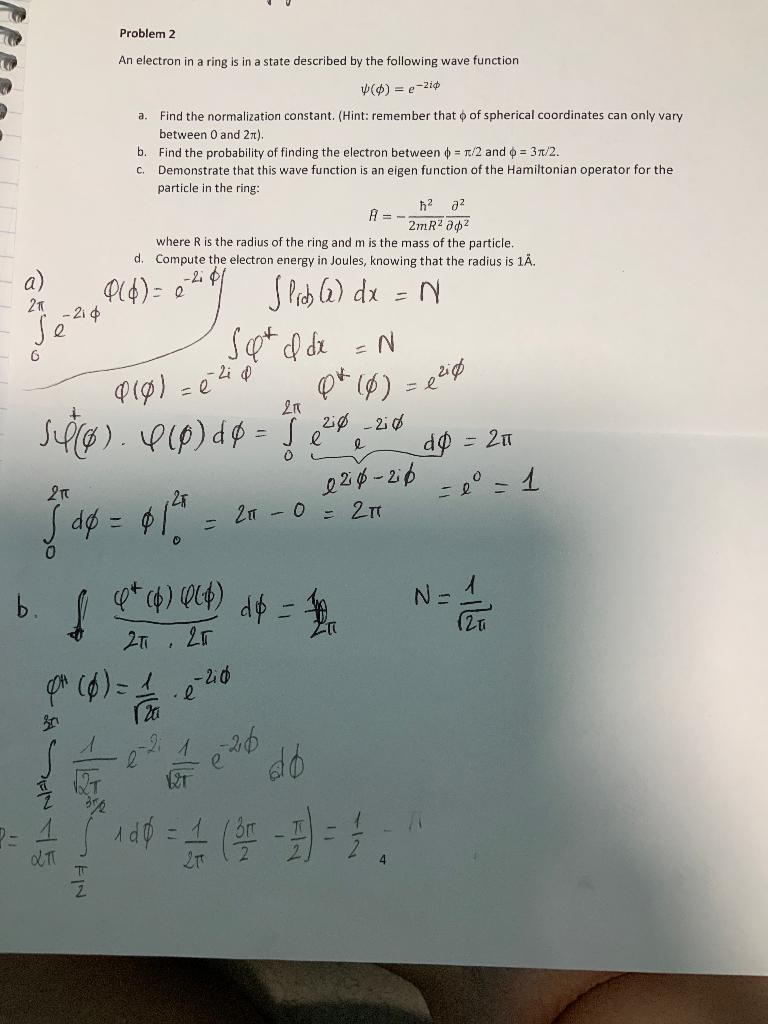 Problem 2
An electron in a ring is in a state described by the following wave function
ψ(ϕ) = e^{-2iϕ}
a. Find the normalization constant. (Hint: remember that ϕ of spherical coordinates can only vary
between 0 and 2π).
b. Find the probability of finding the electron between ϕ = π/2 and ϕ = 3π/2.
c. Demonstrate that this wave function is an eigen function of the Hamiltonian operator for the
particle in the ring:
Ĥ = - ħ²/2mR² ∂²/∂ϕ²
where R is the radius of the ring and m is the mass of the particle.
d. Compute the electron energy in Joules, knowing that the radius is 1Å.
a) φ(ϕ) = e^{-2iϕ} ∫ Prob(x) dx = N
∫_0^{2π} e^{-2iϕ}
∫ φ* φ dx = N
φ(ϕ) = e^{-2iϕ} φ*(ϕ) = e^{2iϕ}
∫ φ*(ϕ) . φ(ϕ) dϕ = ∫_0^{2π} e^{2iϕ} e^{-2iϕ} dϕ = 2π
e^{2iϕ-2iϕ} = e^0 = 1
∫_0^{2π} dϕ = ϕ|_0^{2π} = 2π - 0 = 2π
b. ∫ φ*(ϕ) φ(ϕ) / 2π . 2π dϕ = N = 1/√2π
(ϕ) = 1/√2π . e^{-2iϕ}
∫_{π/2} 1/√2π e^{-2i} 1/√2π e^{-2iϕ} dϕ
P = 1/2π ∫_{π/2}^{3π/2} 1 dϕ = 1/2π (3π/2 - π/2) = 1/2
4